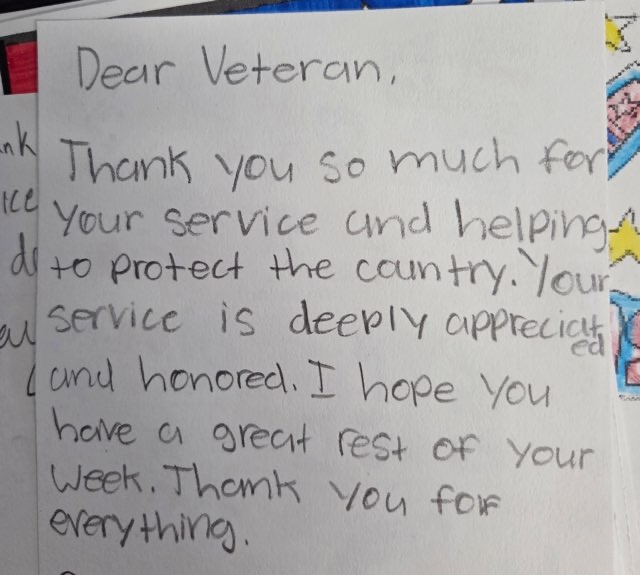 Dear Veteran,
Thank you so much for
your service and helping
to protect the country. Your
service is deeply appreciated
and honored. I hope you
have a great rest of your
week. Thank you for
everything.